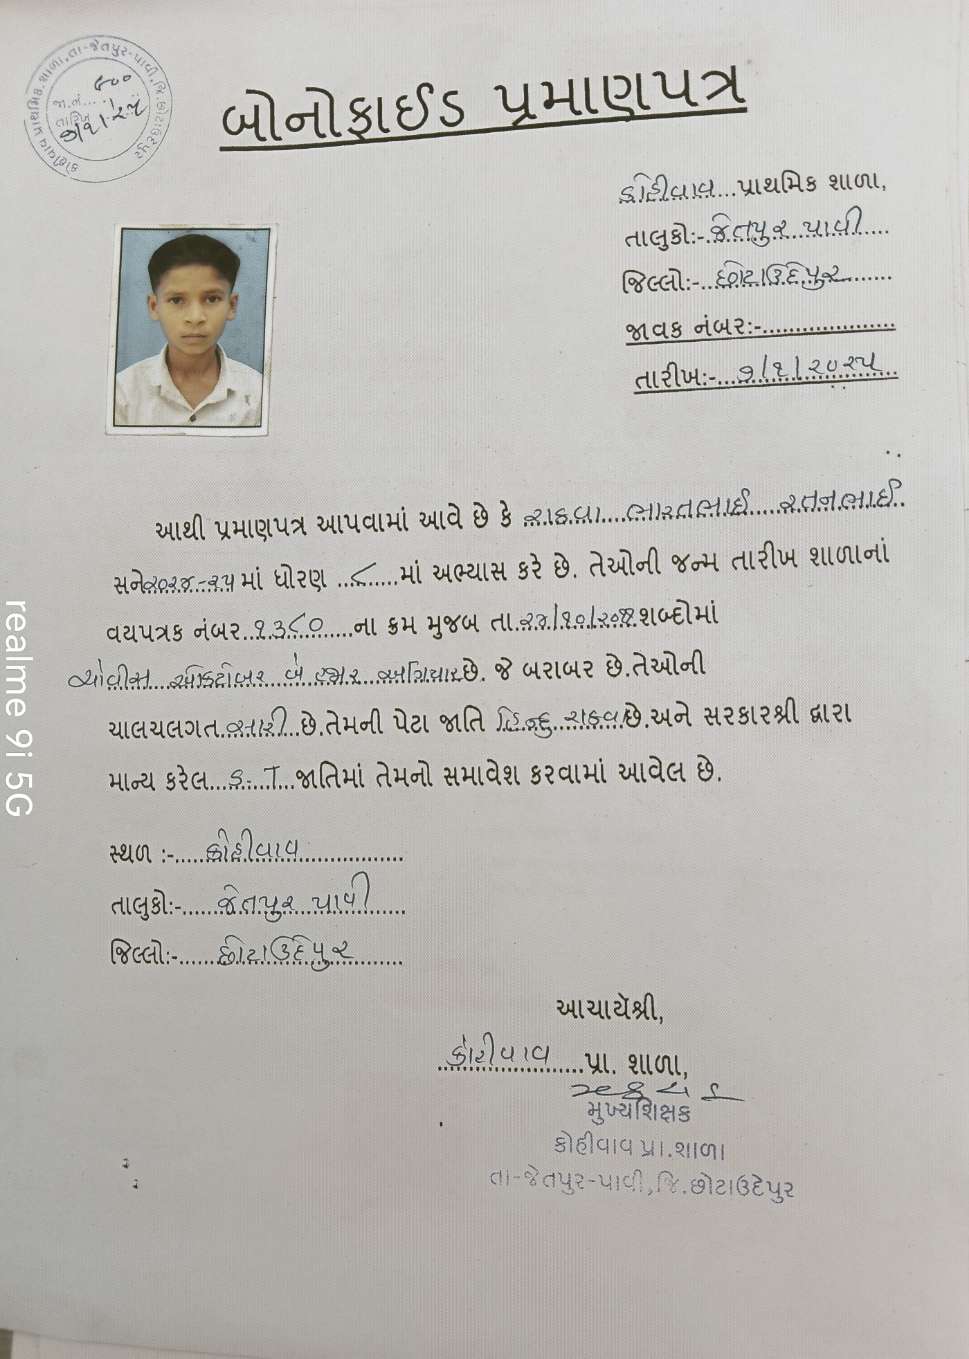 કોહીવાવ પ્રાથમિક શાળા, તા-જેતપુર-પાવી, જિ.છોટાઉદેપુર
જા.નં...
તારીખ
બોનોફાઈડ પ્રમાણપત્ર
કોહીવાવ...પ્રાથમિક શાળા,
તાલુકો:-.જેતપુર પાવી....
જિલ્લો:-..છોટાઉદેપુર.......
જાવક નંબર:-.....................
તારીખ:-...૭/૧/૨૦૨૫..
આથી પ્રમાણપત્ર આપવામાં આવે છે કે રાઠવા....ભારતભાઈ....રતનભાઈ..
સને૨૦૨૪-૨૫માં ધોરણ ..૮.....માં અભ્યાસ કરે છે. તેઓની જન્મ તારીખ શાળાનાં
વયપત્રક નંબર..૧૩૮૦.......ના ક્રમ મુજબ તા.૨૪/૧૦/૨૦૧૧શબ્દોમાં
ચોવીસ ઓક્ટોબર બે હજાર અગિયારછે. જે બરાબર છે.તેઓની
ચાલચલગત.સારી..છે.તેમની પેટા જાતિ હિન્દુ રાઠવાછે.અને સરકારશ્રી દ્વારા
માન્ય કરેલ...S.T...જાતિમાં તેમનો સમાવેશ કરવામાં આવેલ છે.
સ્થળ :-.....કોહીવાવ...............
તાલુકો:-......જેતપુર પાવી......
જિલ્લો:-......છોટાઉદેપુર........
આચાર્યેશ્રી,
કોહીવાવ.....પ્રા. શાળા,
મુખ્યશિક્ષક
કોહીવાવ પ્રા.શાળા
તા-જેતપુર-પાવી,જિ.છોટાઉદેપુર
realme 9i 5G